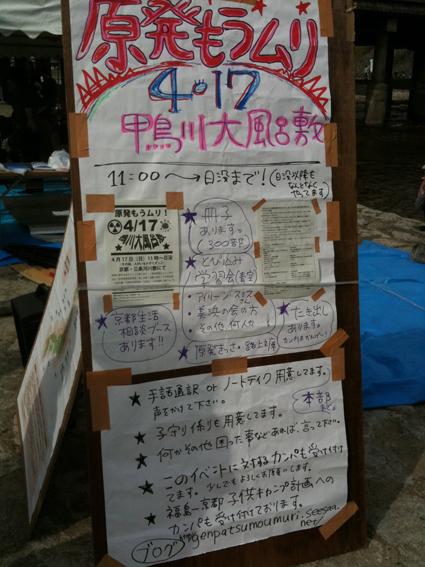 原発もうムリ
4・17
鴨川大風呂敷
11:00 〜→日没まで!(日没以降も
なんとなく
やってます)
原発もうムリ!
4/17
鴨川大風呂敷
4月17日(日)11時〜日没
京都・三条河川敷にて
★冊子
あります。
(300部)
★とび込み
学習会
・アイリーン・スミス
さん
・美浜の会の方
・その他 何人か
★京都生活
相談ブース
あります!!
★たき出し
あります。
★手話通訳 or ノートテイク 用意してます。
声をかけて下さい。
本部
まで。
★子守り係りも用意してます。
★何かその他 困った事などあれば、言って下さい。
★このイベントに対するカンパも受け付け
てます。少しでもよろしくお願いします。
★福島-京都 子供キャンプ計画への
カンパも受け付けております。
ブログ
genpatsumoumuri.seesaa.
net/